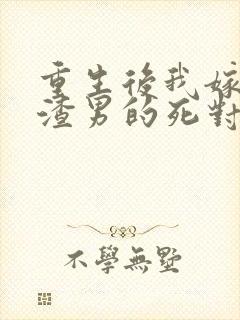 重生後我嫁
渣男的死對
不學無墅